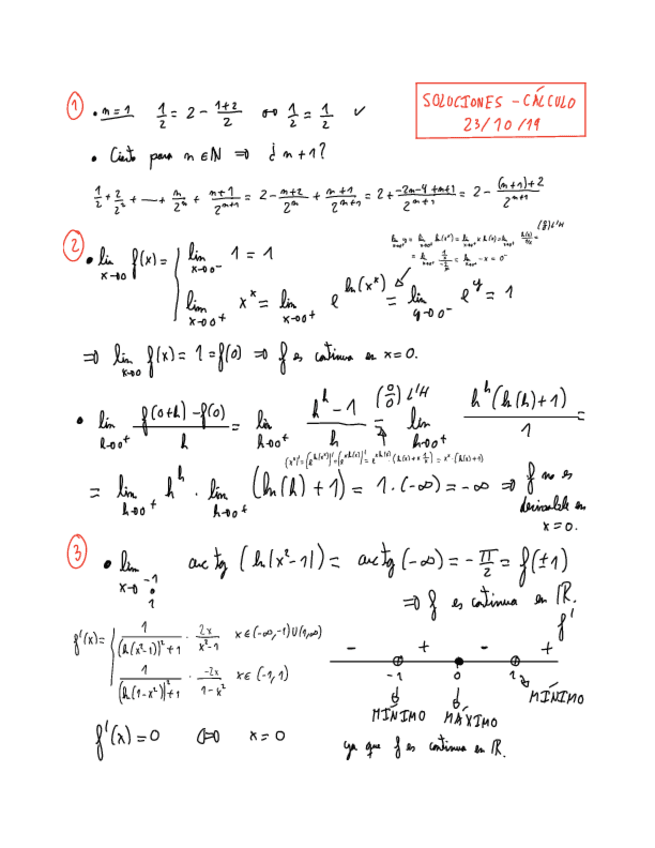 SOLUCIONES - CÁLCULO
23/10/19
① • n=1 1/2 = 2 - (1+2)/2 ⇔ 1/2 = 1/2 ✓
• Cierto para n∈ℕ ⇒ ¿n+1?
1/2 + 2/2² + ... + n/2ⁿ + (n+1)/2ⁿ⁺¹ = 2 - (n+2)/2ⁿ + (n+1)/2ⁿ⁺¹ = 2 + (-2n-4+n+1)/2ⁿ⁺¹ = 2 - ((n+1)+2)/2ⁿ⁺¹
② • lim x→0 f(x) = { lim x→0⁻ 1 = 1
lim x→0⁺ xˣ = lim x→0⁺ e^(ln(xˣ)) = lim y→0⁻ e^y = 1
⇒ lim x→0 f(x) = 1 = f(0) ⇒ f es continua en x=0.
• lim h→0⁺ (f(0+h) - f(0))/h = lim h→0⁺ (hʰ - 1)/h = (0/0) L'H lim h→0⁺ hʰ(ln(h)+1)/1 =
(xˣ)' = (e^(ln(xˣ)))' = (e^(x ln(x)))' = e^(x ln(x)) · (ln(x) + x 1/x) = xˣ · (ln(x)+1)
= lim h→0⁺ hʰ · lim h→0⁺ (ln(h)+1) = 1·(-∞) = -∞ ⇒ f no es
derivable en
x=0.
③ • lim x→ -1, 1 arc tg (ln|x²-1|) = arc tg(-∞) = -π/2 = f(±1)
⇒ f es continua en ℝ.
f'(x) = { 1/((ln(x²-1))²+1) · 2x/(x²-1) x∈(-∞,-1)∪(1,∞)
1/((ln(1-x²))²+1) · -2x/(1-x²) x∈(-1,1)
f'
- + - +
-1 0 1
MÍNIMO MÁXIMO MÍNIMO
f'(x)=0 ⇔ x=0
ya que f es continua en ℝ.